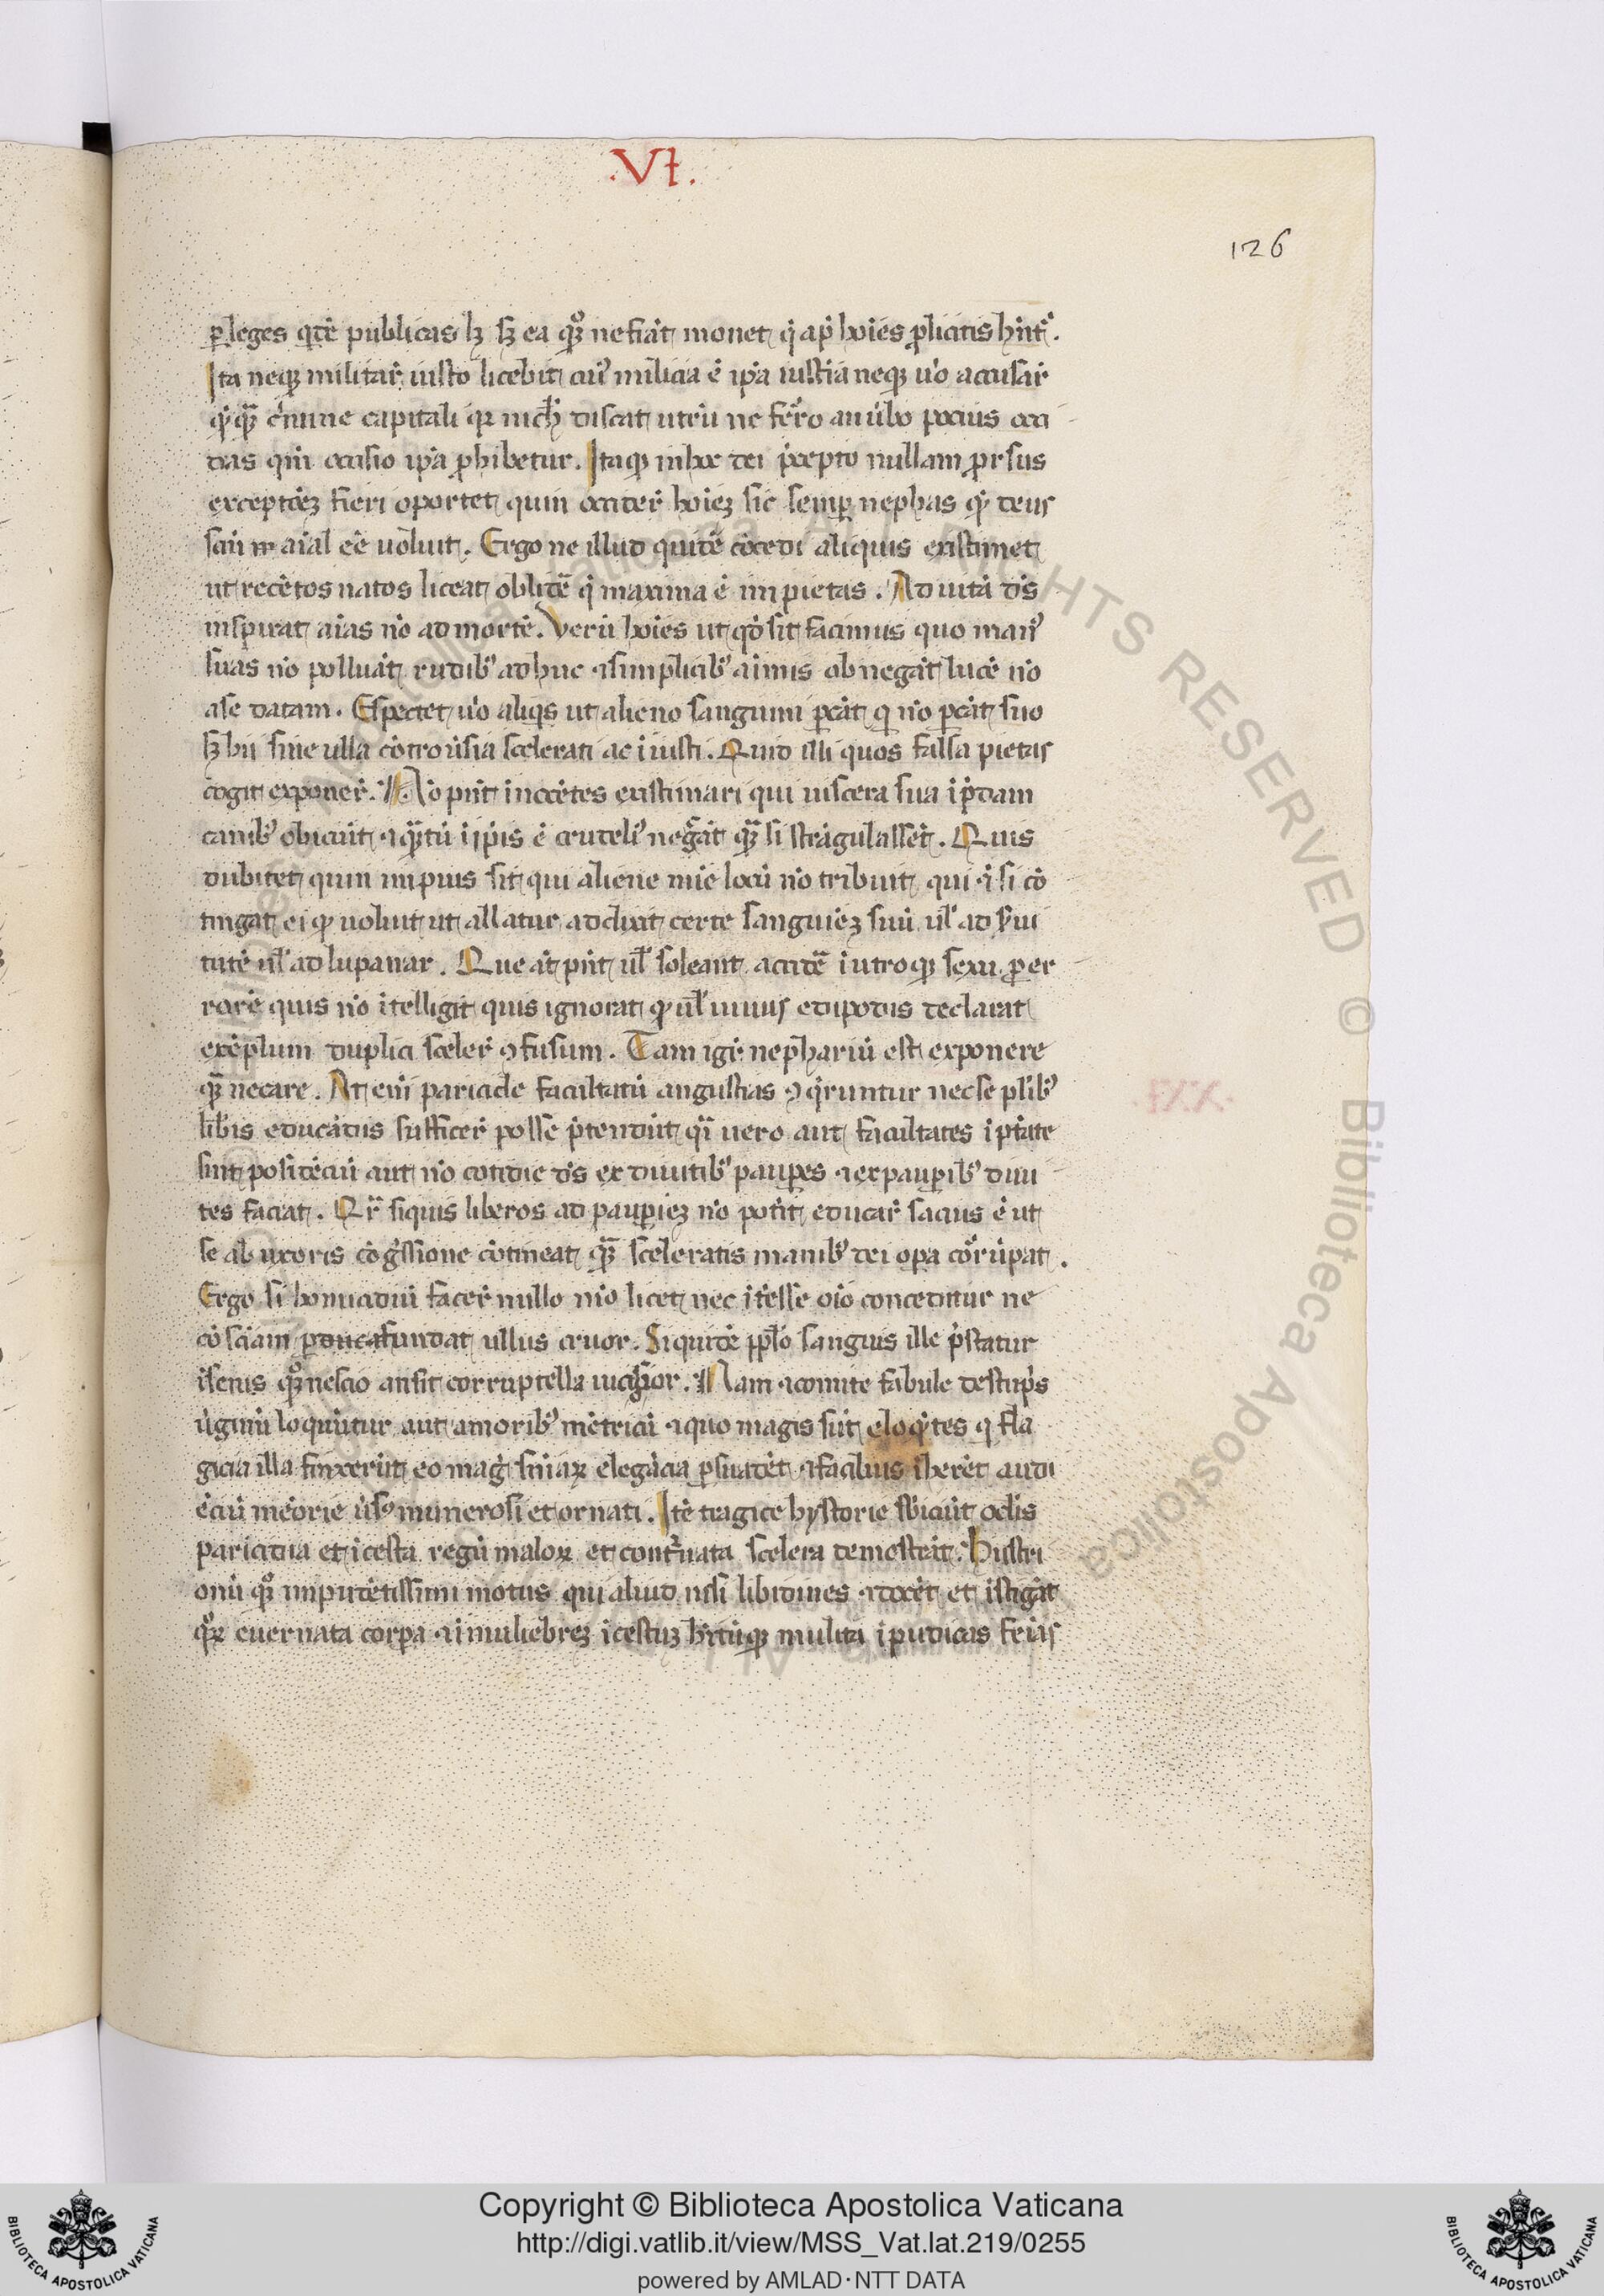 .VI.
126
ꝑ leges qͥdē publicas lꝫ sꝫ ea qͦꝫ ne fiāt monet q̇ apͩ hoīes ꝓ licitis hn̄tͬ.
Ita neqꝫ militar̄ iusto licebit cuiꝰ milicia ē ip̄a iusticia neqꝫ u̇o accusar̄
crimine capitali qꝛ nichil distat utrū ne ferro an ūbo pocius occi
das qm̄ occisio ip̄a ꝓhibetur. Itaqꝫ in hoc dei p̄cepto nullam ꝓrsus
exceptōeꝫ fieri oportet quin occider̄ hoīeꝫ sic semꝑ nephas qͥ deus
scūm aīal eē uoluit. Ergo ne illud quidē cōcedi aliquis existimet
ut recētos natos liceat oblidē q̄ maxima ē impietas. Ad uitā dſ
inspirat aīas nō ad mortē. Verū hoīes ut qd̄ sit facinus quo manꝰ
suas nō polluāt rudibꝰ adhuc ⁊ simplicibꝰ aīmis abnegāt lucē nō
a se datam. Espectet u̇o aliqͥs ut alieno sanguini ꝑcāt q nō ꝑcāt suo
sꝫ hii sine ulla cōtrou̇sia scelerati ac iīusti. Quid illi quos falsa pietas
cogit exponer̄. Nō pn̄t inocētes existimari qui uiscera sua ī p̄dam
canibꝰ obiciūt ⁊ qͣtū ī ip̄is ē crudeliꝰ negāt qͣꝫ si strāgulassēt. Quis
dubitet quin impius sit qui aliene mīe locū nō tribuit qui ⁊ si cō
tingat ei qͩ uoluit ut allatur addixit certe sanguīeꝫ suū ul̄ ad s̄ui
tutē ul̄ ad lupanar. Que āt pn̄t ul̄ soleant accidē ī utroqꝫ sexu ꝓ er
rorē quis nō ītelligit quis ignorat qͩ ul̄ unius edipodis declarat
exēplum duplici sceler̄ ꝯfusum. Tam igͥ nephariū est exponere
qͣꝫ necare. At eni paricide facultatū angustias ꝯq̄runtur nec se plͥibꝰ
libīs educādis sufficer̄ posse p̄tendūt qͣi uero aut facultates ī ptāte
sint possidēciū aut nō cotidie dſ ex diuitibꝰ pauꝑes ⁊ ex pauꝑibꝰ diui
tes faciat. Qͬ siquis liberos ad pauꝑieꝫ nō potit̄ educar̄ sacius ē ut
se ab uxoris cōgssione cōtineat qͣꝫ sceleratis manibꝰ dei oꝑa corrūpat.
Ergo si homicidiū facer̄ nullo mō licet nec īteesse oīo conceditur ne
cōsciam ꝑfundat ullus cruor. Siquidē pplo sanguis ille p̄statur
ī scenis qͦꝫ nescio an sit corruptella uiciosior. Nam ⁊ comice fabule de stupis
u̇ginū loquūtur aut amoribꝰ mētricū ⁊ quo magis sūt eloqͥtes q fla
gicia illa finxerūt eo mag̓ sn̄iaꝝ elegācia ꝑsuadēt ⁊ facilius ihērēt audi
ēciū mēorie u̇sꝰ numerosi et ornati. Itē tragice hystorie sbiciūt oclis
paricidia et īcesta regū maloꝝ et coturnata scelera demostrāt. Histri
onū qͦꝫ impudētissimi motus qui aliud nisi libidines ⁊ docēt et īstigāt
qͦꝝ eueruata corpa ⁊ ī muliebreꝫ īcessuꝫ hītūqꝫ mulita īpudicas feīas